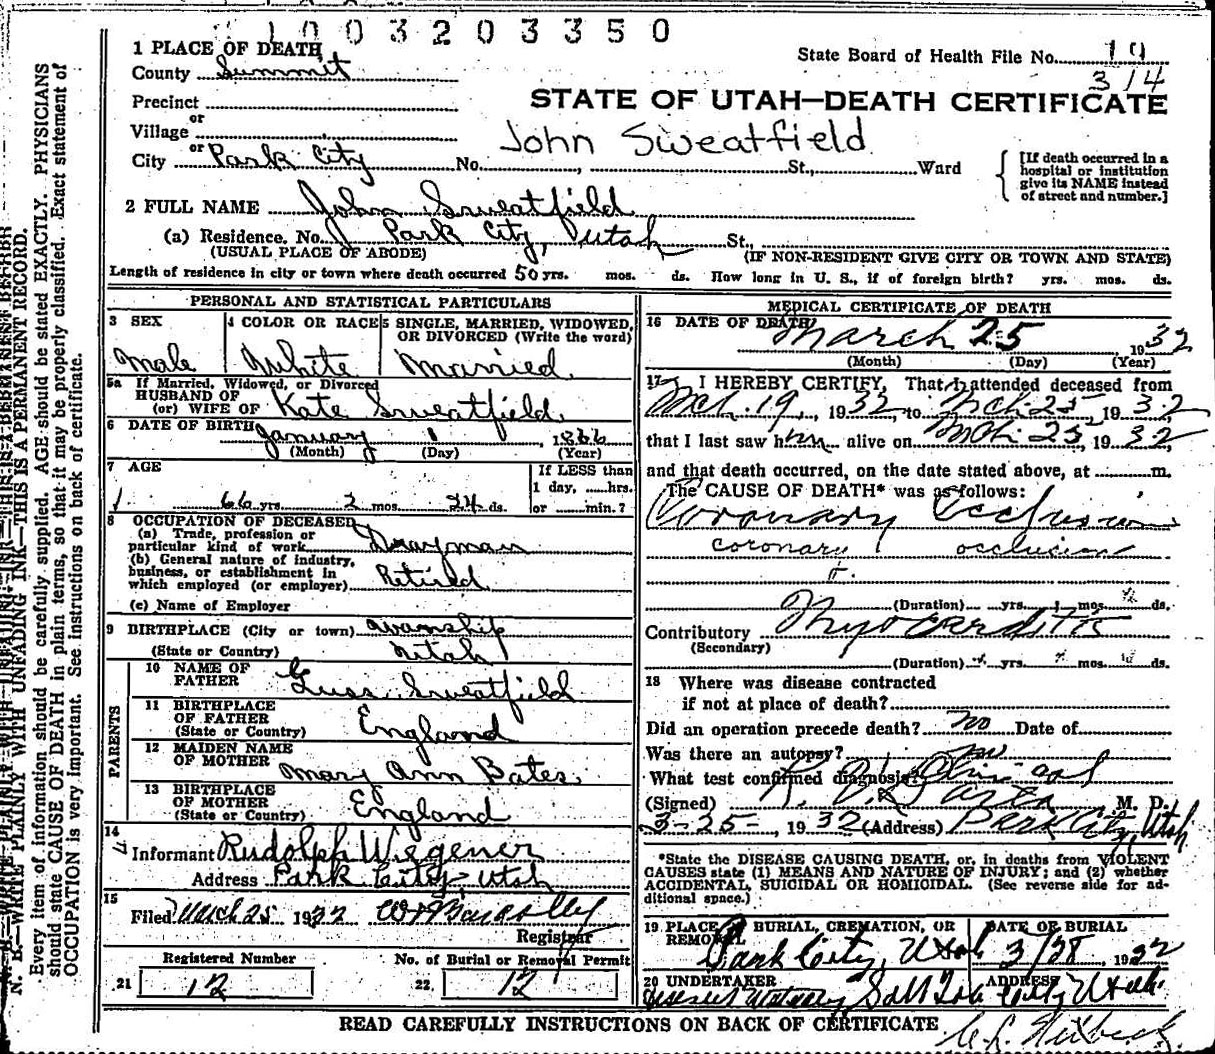 1003203350
1 PLACE OF DEATH
State Board of Health File No. 19
County Summit
314
Precinct
STATE OF UTAH—DEATH CERTIFICATE
or
Village
John Sweatfield
or
City Park City No. , St., Ward
[If death occurred in a
hospital or institution
give its NAME instead
of street and number.]
2 FULL NAME John Sweatfield
(a) Residence. No. Park City, Utah St.,
(USUAL PLACE OF ABODE) (IF NON-RESIDENT GIVE CITY OR TOWN AND STATE)
Length of residence in city or town where death occurred 50 yrs. mos. ds. How long in U. S., if of foreign birth? yrs. mos. ds.
PERSONAL AND STATISTICAL PARTICULARS
3 SEX 4 COLOR OR RACE 5 SINGLE, MARRIED, WIDOWED,
OR DIVORCED (Write the word)
Male White Married
5a If Married, Widowed, or Divorced
HUSBAND OF
(or) WIFE OF Kate Sweatfield
6 DATE OF BIRTH January 1, 1866
(Month) (Day) (Year)
7 AGE If LESS than
1 day, hrs.
66 yrs. 2 mos. 24 ds. or min.?
8 OCCUPATION OF DECEASED
(a) Trade, profession or
particular kind of work Drayman
(b) General nature of industry,
business, or establishment in
which employed (or employer) Retired
(c) Name of Employer
9 BIRTHPLACE (City or town) Wanship
(State or Country) Utah
PARENTS
10 NAME OF
FATHER Guss Sweatfield
11 BIRTHPLACE
OF FATHER England
(State or Country)
12 MAIDEN NAME
OF MOTHER Mary Ann Bates
13 BIRTHPLACE
OF MOTHER England
(State or Country)
14
Informant Rudolph Wegener
Address Park City, Utah
15
Filed March 25 1932
Registrar
Registered Number No. of Burial or Removal Permit
21 12 22 12
MEDICAL CERTIFICATE OF DEATH
16 DATE OF DEATH March 25 1932
(Month) (Day) (Year)
17 I HEREBY CERTIFY, That I attended deceased from
Mch. 19, 1932 to Mch. 25 1932
that I last saw him alive on Mch. 25, 1932
and that death occurred, on the date stated above, at m.
The CAUSE OF DEATH* was as follows:
Coronary Occlusion
coronary occlusion
(Duration) yrs. mos. ds.
Contributory Myocarditis
(Secondary)
(Duration) yrs. mos. ds.
18 Where was disease contracted
if not at place of death?
Did an operation precede death? no Date of
Was there an autopsy? no
What test confirmed diagnosis? Clinical
(Signed) , M. D.
3-25-, 1932 (Address) Park City, Utah
*State the DISEASE CAUSING DEATH, or, in deaths from VIOLENT
CAUSES state (1) MEANS AND NATURE OF INJURY; and (2) whether
ACCIDENTAL, SUICIDAL OR HOMICIDAL. (See reverse side for ad-
ditional space.)
19 PLACE OF BURIAL, CREMATION, OR DATE OF BURIAL
REMOVAL Park City, Utah 3/28, 1932
20 UNDERTAKER ADDRESS
Deseret Mortuary Salt Lake City Utah
READ CAREFULLY INSTRUCTIONS ON BACK OF CERTIFICATE
N. B.—WRITE PLAINLY WITH UNFADING INK—THIS IS A PERMANENT RECORD.
Every item of information should be carefully supplied. AGE should be stated EXACTLY. PHYSICIANS
should state CAUSE OF DEATH in plain terms, so that it may be properly classified. Exact statement of
OCCUPATION is very important. See instructions on back of certificate.